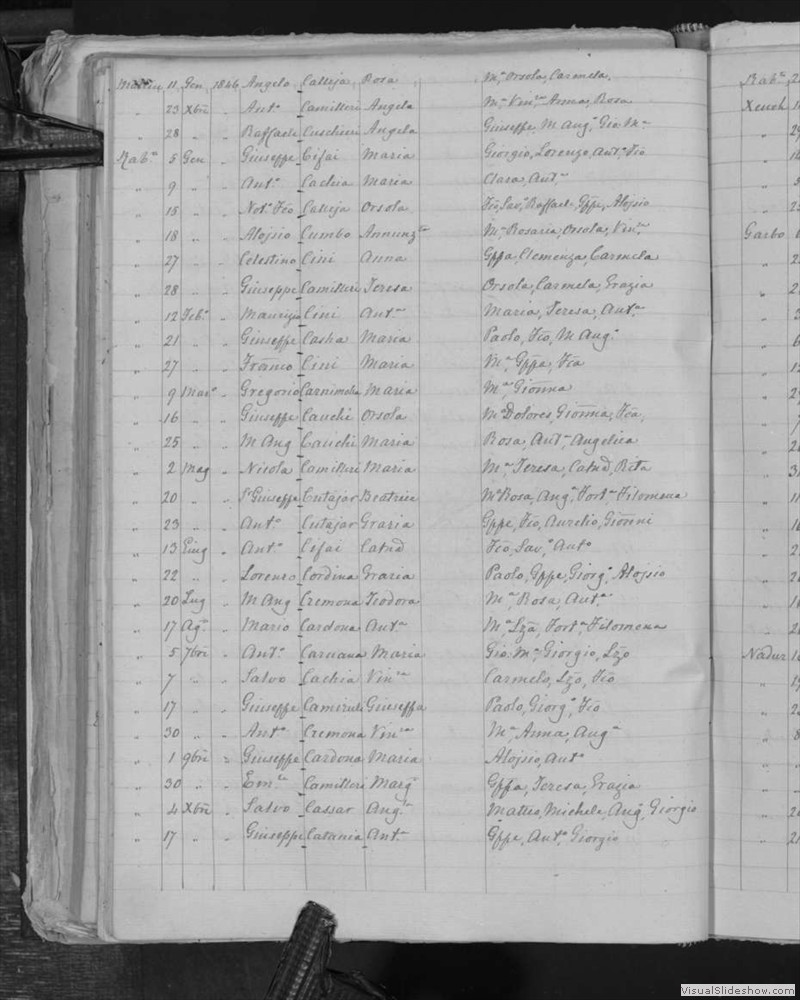 11 Gen 1846 Angelo Calleja Rosa Mª Orsola, Carmela,
" 23 Xbre " Antº Camilleri Angela Mª Vinᶻª Anna, Rosa
" 28 " " Raffaele Cuschieri Angela Giuseppe, M Augº Gio Mª
Rabº 5 Gen " Giuseppe Cifai Maria Giorgio, Lorenzo, Antº Fco
" 9 " " Antº Cachia Maria Clara, Antª
" 15 " " Notº Fco Calleja Orsola Fco, Savº Raffaele, Gppe, Alojsio
" 18 " " Alojsio Cumbo Annunzᵗª Mª Rosaria, Orsola, Vinᶻª
" 27 " " Celestino Cini Anna Gppa, Clemenza, Carmela
" 28 " " Giuseppe Camilleri Teresa Orsola, Carmela, Grazia
" 12 Febº " Maurizio Cini Antª Maria, Teresa, Antª
" 21 " " Giuseppe Casha Maria Paolo, Fco, M Augº
" 27 " " Franco Cini Maria Mª Gppa, Fca
" 9 Marº " Gregorio Maria Mª Gionna
" 16 " " Giuseppe Cauchi Orsola Mª Dolores, Gionna, Fca,
" 25 " " M Aug Cauchi Maria Rosa, Antª Angelica
" 2 Mag " Nicola Camilleri Maria Mª Teresa, Catnᵈ, Rita
" 20 " " Sʳ Giuseppe Cutajar Beatrice Mª Rosa, Augª Fortª Filomena
" 23 " " Antº Cutajar Grazia Gppe, Fco, Aurelio, Gionni
" 13 Giug " Antº Cifai Catnᵈ Fco, Savº Antº
" 22 " " Lorenzo Cordina Grazia Paolo, Gppe, Giorgº Alojsio
" 20 Lug " M Aug Cremona Teodora Mª Rosa, Antª
" 17 Agº " Mario Cardona Antª Mª Lza, Fortª Filomena
" 5 7bre " Antº Caruana Maria Gio: Mª Giorgio, Lzo
" 7 " " Salvo Cachia Vinᶻª Carmelo, Lzo, Fco
" 17 " " Giuseppe Giuseppa Paolo, Giorgº, Fco
" 30 " " Antº Cremona Vinᶻª Mª Anna, Augª
" 1 9bre " Giuseppe Cardona Maria Alojsio, Antº
" 30 " " Emᶻˡᵉ Camilleri Margª Gppa, Teresa, Grazia
" 4 Xbre " Salvo Cassar Augª Matteo, Michele, Augº, Giorgio
" 17 " " Giuseppe Catania Antª Gppe, Antº, Giorgio
Rabº
Xeuch
Garbo
Nadur
VisualSlideshow.com